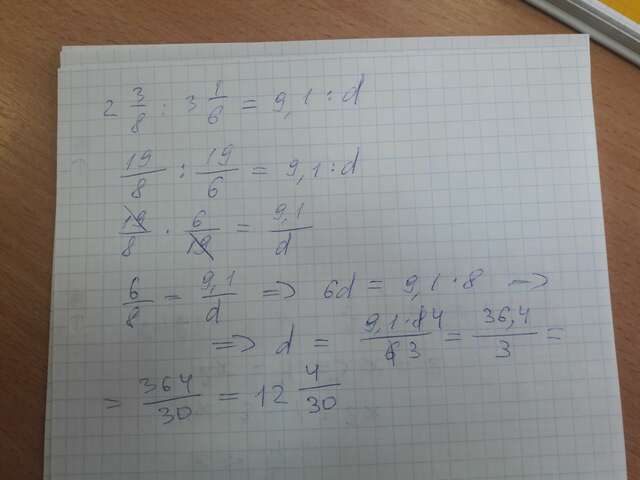 2 3/8 : 3 1/6 = 9,1 : d
19/8 : 19/6 = 9,1 : d
19/8 · 6/19 = 9,1/d
6/8 = 9,1/d => 6d = 9,1 · 8 =>
=> d = 9,1 · 8 4/6 3 = 36,4/3 =
= 364/30 = 12 4/30